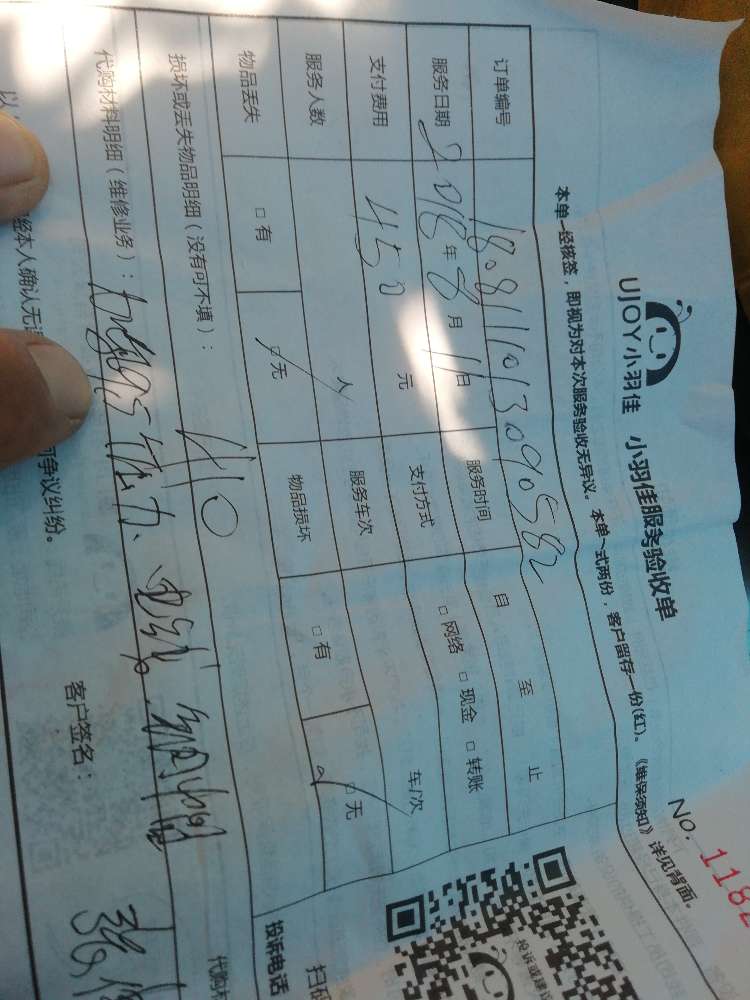 UJOY小羽佳 小羽佳服务验收单
No. 1182
本单一经核签，即视为对本次服务验收无异议。本单一式两份，客户留存一份(红)。《维保须知》详见背面。
订单编号 180811013090582
服务日期 2018年8月11日 服务时间 自 至 止
支付费用 450 元 支付方式 □网络 □现金 □转账
服务人数 人 服务车次 车/次
物品丢失 □有 □无 物品损坏 □有 □无
损坏或丢失物品明细（没有可不填）：
410
代购材料明细（维修业务）：
代购材
经本人确认无
争议纠纷。
客户签名：
投诉电话
扫码
投诉或建议